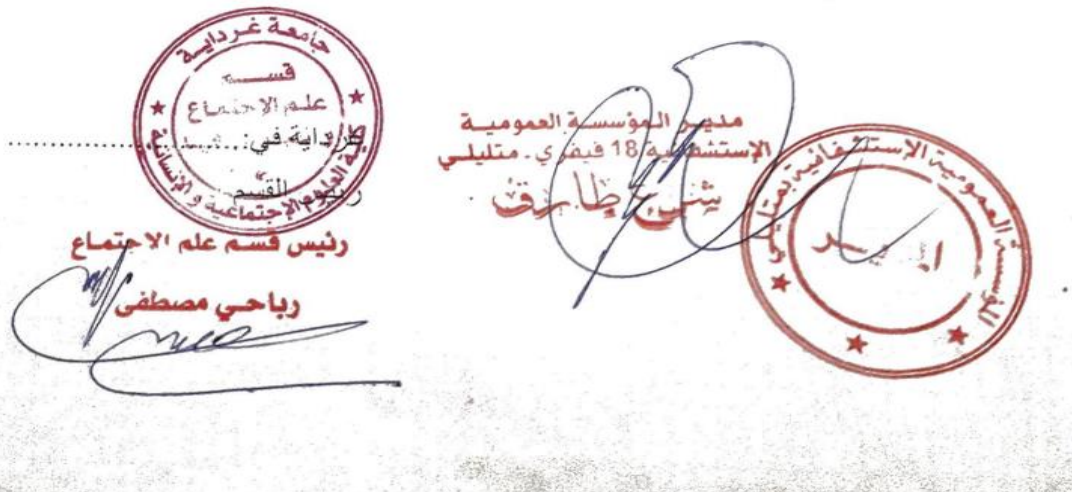 جامعة غرداية
قســـم
علم الاجتماع
كلية العلوم الإجتماعية و الإنسانية
غرداية في: ......................
رئيس القسم
رئيس قسم علم الاجتماع
رباحي مصطفى
مديـر المؤسسـة العموميـة
الإستشفائية 18 فيفري . متليلـي
طارق
المؤسسة العمومية الإستشفائية بمتليلي
المديـــر